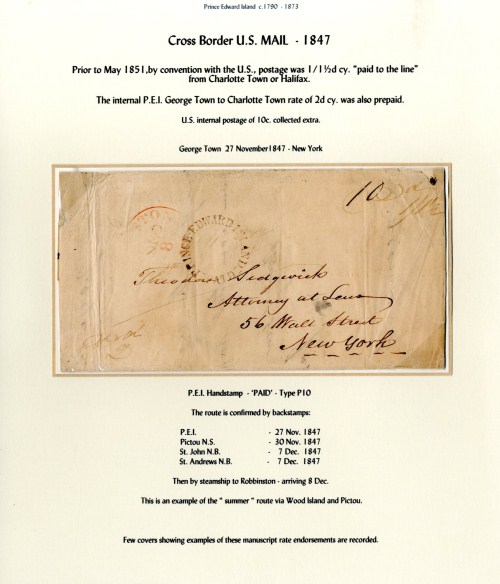 Prince Edward Island c.1790 - 1873
Cross Border U.S. MAIL - 1847
Prior to May 1851,by convention with the U.S., postage was 1/1½d cy. "paid to the line"
from Charlotte Town or Halifax.
The internal P.E.I. George Town to Charlotte Town rate of 2d cy. was also prepaid.
U.S. internal postage of 10c. collected extra.
George Town 27 November1847 - New York
10
PRINCE EDWARD ISLAND
PAID
Theodore Sedgwick
Attorney at Law
56 Wall Street
New York
P.E.I. Handstamp - 'PAID' - Type P10
The route is confirmed by backstamps:
P.E.I. - 27 Nov. 1847
Pictou N.S. - 30 Nov. 1847
St. John N.B. - 7 Dec. 1847
St. Andrews N.B. - 7 Dec. 1847
Then by steamship to Robbinston - arriving 8 Dec.
This is an example of the " summer " route via Wood Island and Pictou.
Few covers showing examples of these manuscript rate endorsements are recorded.